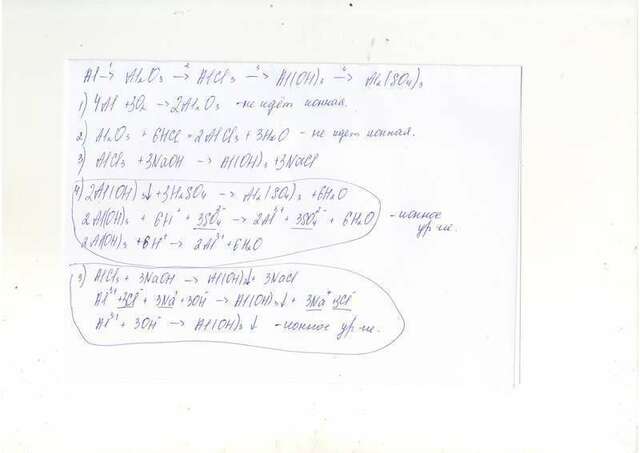 Al →¹ Al₂O₃ →² AlCl₃ →³ Al(OH)₃ →⁴ Al₂(SO₄)₃
1) 4Al + 3O₂ → 2Al₂O₃ - не идёт ионная.
2) Al₂O₃ + 6HCl = 2AlCl₃ + 3H₂O - не идет ионная.
3) AlCl₃ + 3NaOH → Al(OH)₃ + 3NaCl
4) 2Al(OH)₃↓ + 3H₂SO₄ → Al₂(SO₄)₃ + 6H₂O
2Al(OH)₃ + 6H⁺ + 3SO₄²⁻ → 2Al³⁺ + 3SO₄²⁻ + 6H₂O - ионное ур-ие.
2Al(OH)₃ + 6H⁺ → 2Al³⁺ + 6H₂O
3) AlCl₃ + 3NaOH → Al(OH)₃↓ + 3NaCl
Al³⁺ + 3Cl⁻ + 3Na⁺ + 3OH⁻ → Al(OH)₃↓ + 3Na⁺ + 3Cl⁻
Al³⁺ + 3OH⁻ → Al(OH)₃↓ - ионное ур-ие.